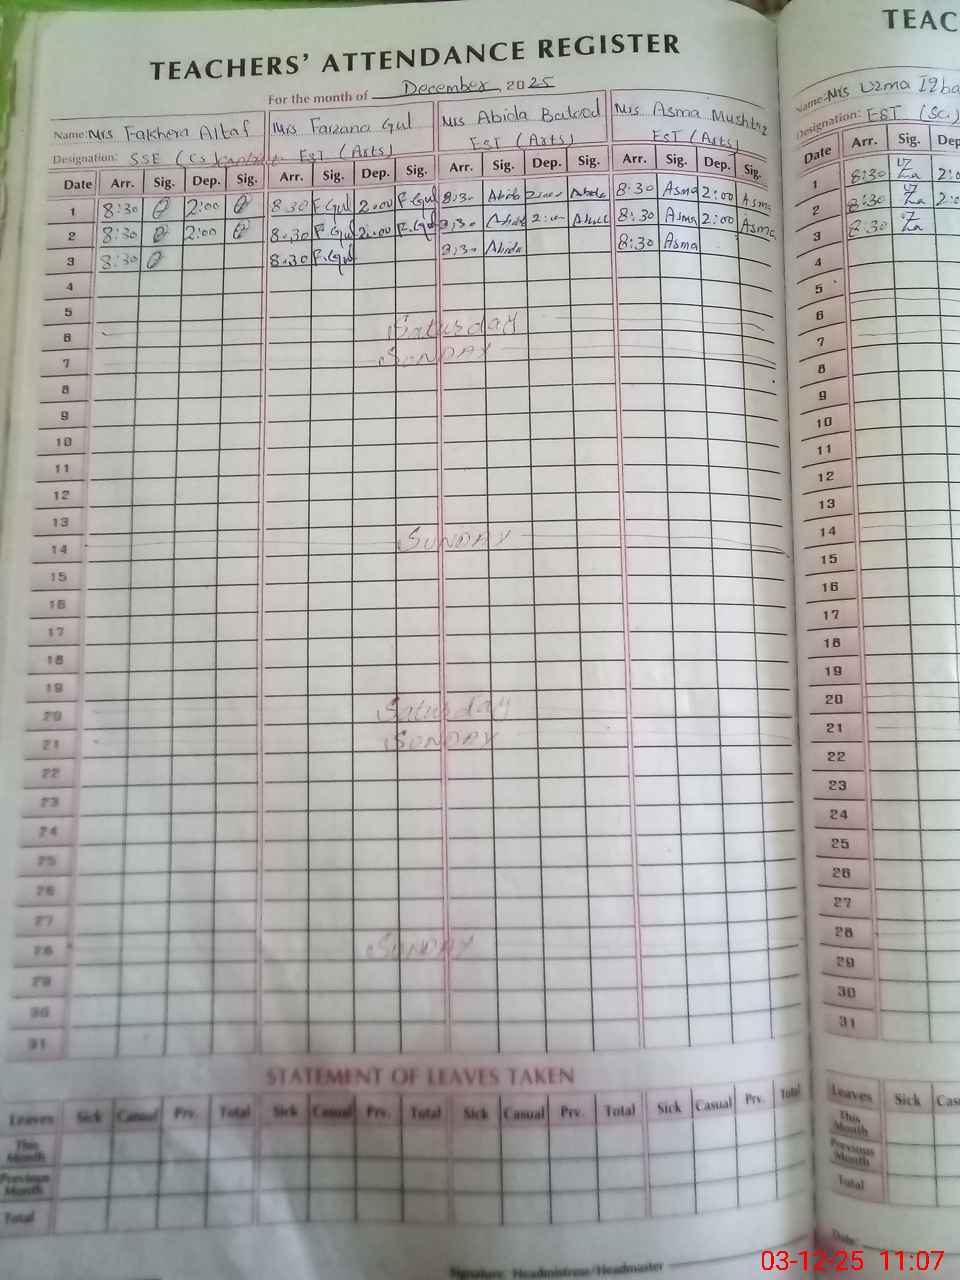 TEACHERS' ATTENDANCE REGISTER
For the month of December, 2025
Name: Mrs Fakhera Altaf Mrs Farzana Gul Mrs Abida Mrs Asma Mushtaq
Designation: SSE (CS) EST (Arts) EST (Arts) EST (Arts)
Date Arr. Sig. Dep. Sig. Arr. Sig. Dep. Sig. Arr. Sig. Dep. Sig. Arr. Sig. Dep. Sig.
1 8:30 2:00 8.30 F.Gul 2.00 F.Gul 8:30 Abida 2:00 Abida 8:30 Asma 2:00 Asma
2 8:30 2:00 8.30 F.Gul 2:00 F.Gul 8:30 Abida 2:00 8:30 Asma 2:00 Asma
3 8:30 8.30 F.Gul 8:30 Abida 8:30 Asma
4
5
6 Saturday
7 SUNDAY
8
9
10
11
12
13
14 SUNDAY
15
16
17
18
19
20 Saturday
21 SUNDAY
22
23
24
25
26
27
28 SUNDAY
29
30
31
STATEMENT OF LEAVES TAKEN
Leaves Sick Casual Prv. Total Sick Casual Prv. Total Sick Casual Prv. Total Sick Casual Prv. Total
This Month
Previous Month
Total
Signature: Headmistress/Headmaster
TEAC
Name: Mrs Uzma Iqba
Designation: EST (Sc.)
Date Arr. Sig. Dep
1 8:30 2:0
2 8:30 2:0
3 8:30
4
5
6
7
8
9
10
11
12
13
14
15
16
17
18
19
20
21
22
23
24
25
26
27
28
29
30
31
Leaves Sick Cas
This Month
Previous Month
Total
Date:
03-12-25 11:07